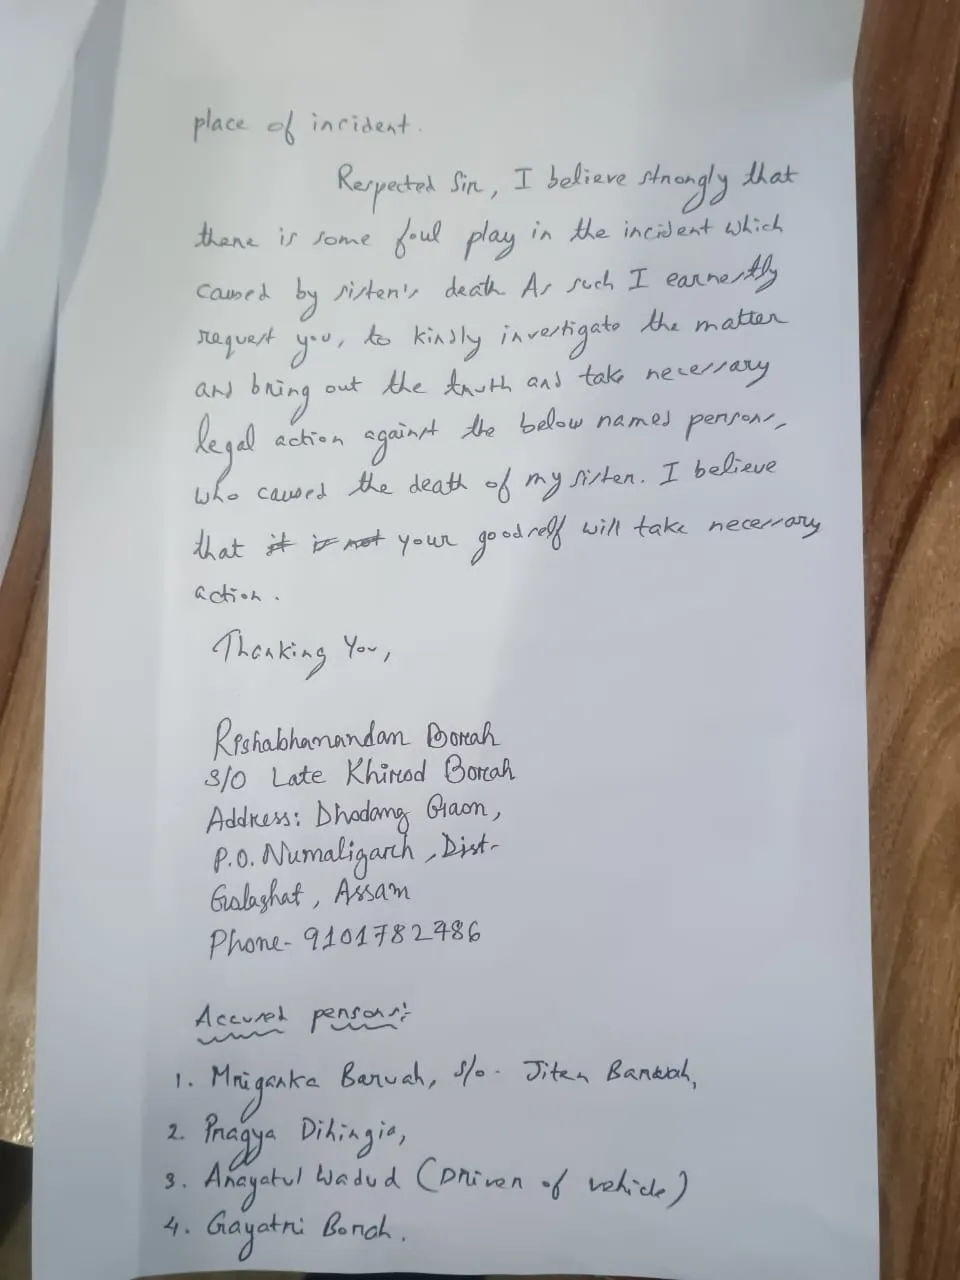 place of incident.
Respected Sir, I believe strongly that
there is some foul play in the incident which
caused by sister's death. As such I earnestly
request you, to kindly investigate the matter
and bring out the truth and take necessary
legal action against the below named persons,
who caused the death of my sister. I believe
that it is not your goodself will take necessary
action.
Thanking You,
Rishabhanandan Borah
S/O Late Khirod Borah
Address: Dhodang Gaon,
P.O. Numaligarh, Dist-
Golaghat, Assam
Phone- 9101782486
Accused persons:
1. Mriganka Baruah, s/o. Jiten Baruah,
2. Pragya Dihingia,
3. Anayatul Wadud (Driver of vehicle)
4. Gayatri Borah.